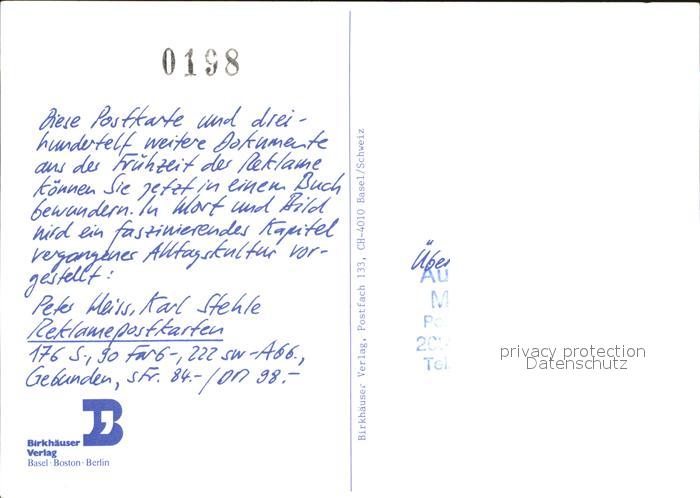 0198
Diese Postkarte und drei-
hundertelf weitere Dokumente
aus der Frühzeit der Reklame
können Sie jetzt in einem Buch
bewundern. In Wort und Bild
wird ein faszinierendes Kapitel
vergangener Alltagskultur vor-
gestellt:
Peter Weiss, Karl Stehle
Reklamepostkarten
176 S., 90 Farb-, 222 sw-Abb.,
Gebunden, sFr. 84.-/DM 98.-
Birkhäuser
Verlag
Basel · Boston · Berlin
Birkhäuser Verlag, Postfach 133, CH-4010 Basel/Schweiz
Über
Au
M
Po
20
Tel
privacy protection
Datenschutz